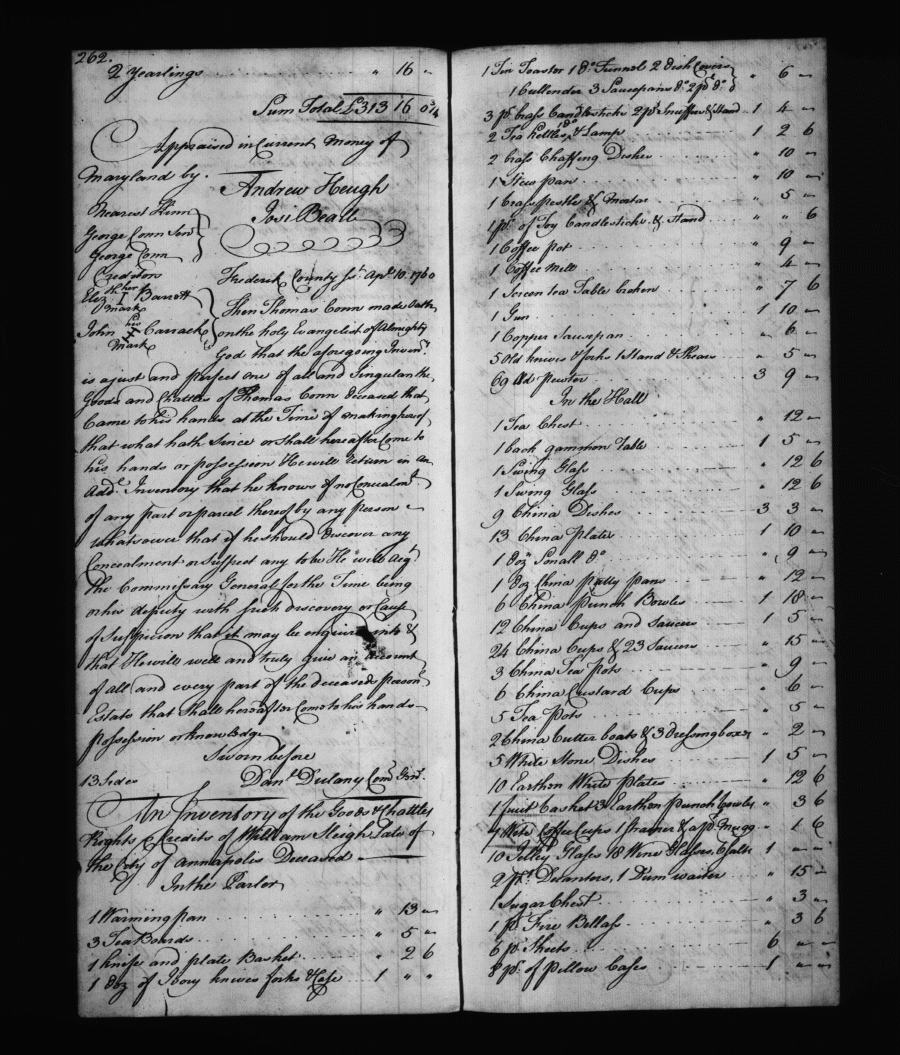 262.
2 Yearlings " 16 "
Sum Total £313 16 0¾
Appraised in Current Money of
Maryland by.
Andrew Heugh
Josi Beall
Nearest Kinn
George Conn Senr
George Conn
Creditors
Elez her I Barrott
mark
John his Carrack
mark
Frederick County Ss. Apl. 10. 1760
Then Thomas Conn made Oath
on the holy Evangelist of Almighty
God that the aforegoing Inveny.
is a just and perfect one of all and Singular the
Goods and Chattles of Thomas Conn deceased that
Came to his hands at the Time of making hereof
that what hath Since or shall hereafter Come to
his hands or possession He will return in an
Addl. Inventory that he knows of no Concealmt.
of any part or parcel thereof by any person
whatsoever that if he should discover any
Concealment or Suspect any to be He will Acqt.
the Commissary General for the Time being
or his deputy with Such discovery or Cause
of Suspicion that it may be enquired into &
that He will well and truly give an Account
of all and every part of the deceased person
Estate that Shall hereafter Come to his hands
possession or knowledge
Sworn before
13 Sides Danl. Dulany Com. Genl.
An Inventory of the Goods & Chattles
Rights & Credits of William Sleigh Late of
the City of Annapolis Deceased
In the Parlor
1 Warming pan " 13 "
3 Tea Boards " 5 "
1 knife and plate Basket " 2 6
1 doz of Ivory knives forks & Case 1 " "
1 Tin Toaster 1 do. Funnel 2 dish Covers
1 Cullender 3 Saucepans do. 2 ps. do. " 6 "
3 pr. brass Candlesticks 2 pr. Snuffers & Stand 1 4 "
2 Tea kettles do. & Lamp 1 2 6
2 brass Chaffing Dishes " 10 "
1 Stew pan " 10 "
1 brass pestle & Mortar " 5 "
1 pr. of Toy Candlesticks & Stand " " 6
1 Coffee pot " 9 "
1 Coffee Mill " 4 "
1 Screen tea Table broken " 7 6
1 Gun 1 10 "
1 Copper Saucepan " 6 "
5 Old knives & forks 1 Stand & Shears " 5 "
69 lb Old pewter 3 9 "
In the Hall
1 Tea Chest " 12 "
1 back gammon Table 1 5 "
1 Swing Glass " 12 6
1 Swing Glass " 12 6
9 China Dishes 3 3 "
13 China plates 1 10 "
1 doz Small do. " 9 "
1 doz China patty pans " 12 "
6 China punch Bowles 1 18 "
12 China Cups and Saucers 1 5 "
24 China Cups & 23 Saucers " 15 "
3 China Tea Pots " 9 "
6 China Custard Cups " 6 "
5 Tea Pots " 5 "
2 China Butter boats & 3 dressing boxes " 2 "
5 White Stone Dishes 1 5 "
10 Earthen White plates " 12 6
1 fruit basket 3 Earthen punch bowles " 3 6
4 White Coffee Cups 1 Strainer & a pt. Mugg " 1 6
10 Jelley Glasses 18 Wine Glasses, 6 Salts 1 " "
2 pt. Decanters, 1 Dum waiter " 15 "
1 Sugar Chest " 3 "
1 pr. Fire Bellass " 3 6
6 pr. Sheets 6 " "
8 pr. of pillow Cases 1 " "